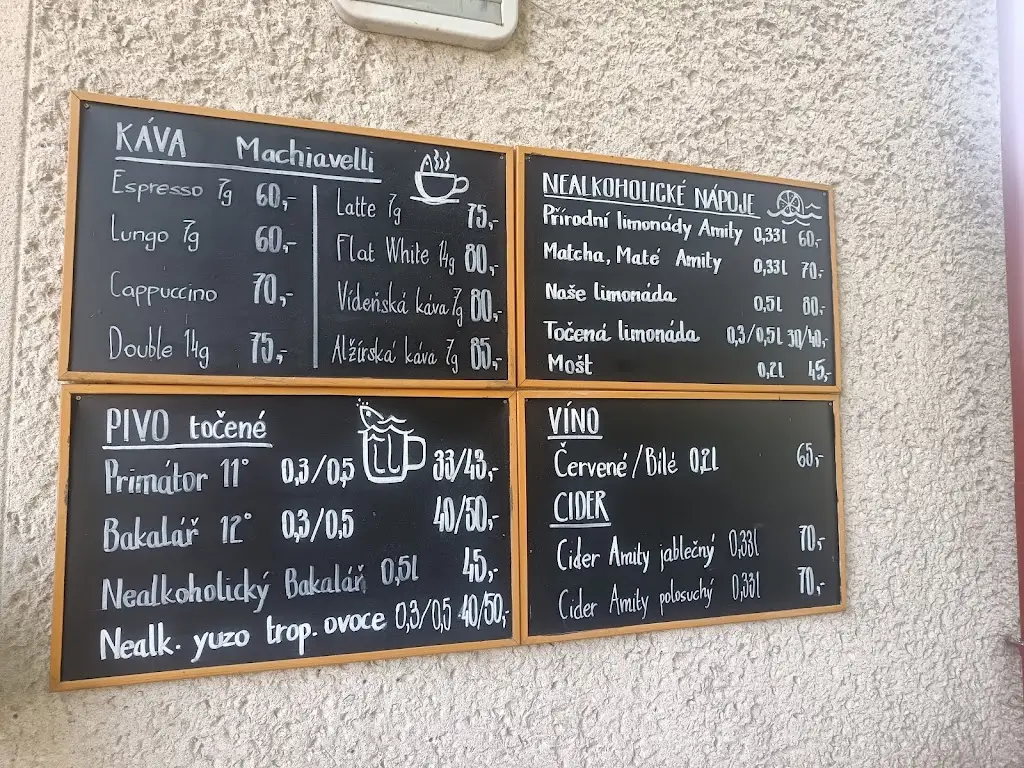 KÁVA Machiavelli
Espresso 7g 60,-
Lungo 7g 60,-
Cappuccino 70,-
Double 14g 75,-
Latte 7g 75,-
Flat White 14g 80,-
Vídeňská káva 7g 80,-
Alžírská káva 7g 85,-
NEALKOHOLICKÉ NÁPOJE
Přírodní limonády Amity 0,33l 60,-
Matcha, Maté Amity 0,33l 70,-
Naše limonáda 0,5l 80,-
Točená limonáda 0,3/0,5l 30/40,-
Mošt 0,2l 45,-
PIVO točené
Primátor 11° 0,3/0,5 33/43,-
Bakalář 12° 0,3/0,5 40/50,-
Nealkoholický Bakalář 0,5l 45,-
Nealk. yuzo trop. ovoce 0,3/0,5 40/50,-
VÍNO
Červené/Bílé 0,2l 65,-
CIDER
Cider Amity jablečný 0,33l 70,-
Cider Amity polosuchý 0,33l 70,-